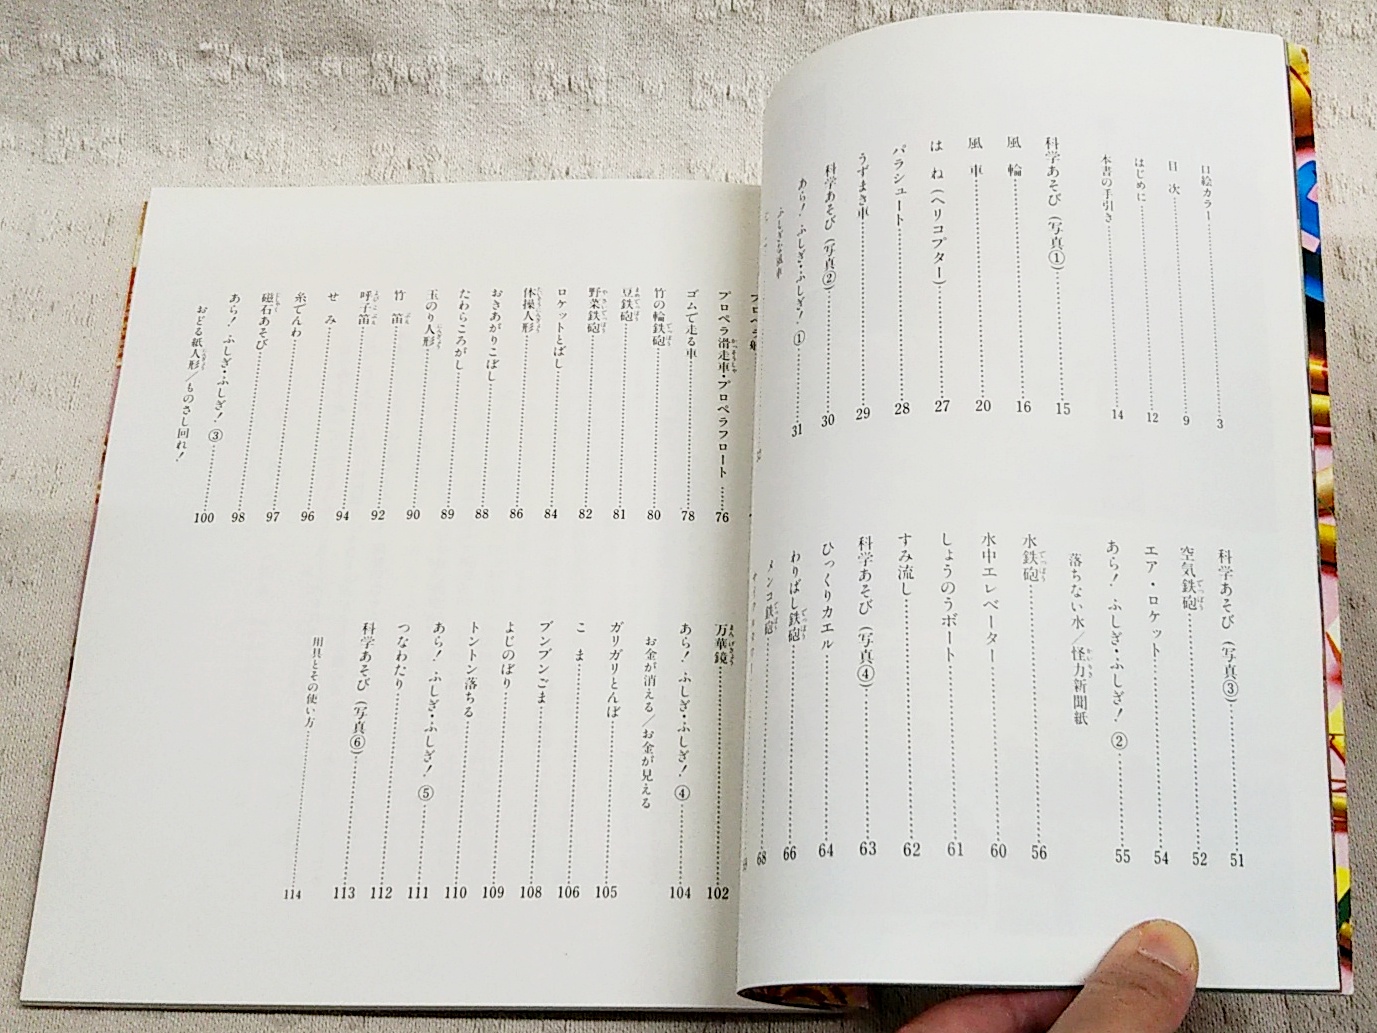 口絵カラー……3
目次……9
はじめに……12
本書の手引き……14
科学あそび（写真①）……15
風輪……16
風車……20
はね（ヘリコプター）……27
パラシュート……28
うずまき車……29
科学あそび（写真②）……30
あら！ふしぎ・ふしぎ！①……31
科学あそび（写真③）……51
空気鉄砲……52
エア・ロケット……54
あら！ふしぎ・ふしぎ！②……55
落ちない水／怪力新聞紙
水鉄砲……56
水中エレベーター……60
しょうのうボート……61
すみ流し……62
科学あそび（写真④）……63
ひっくりカエル……64
わりばし鉄砲……66
メンコ鉄砲……68
プロペラ滑走車・プロペラフロート……76
ゴムで走る車……78
竹の輪鉄砲……80
豆鉄砲……81
野菜鉄砲……82
ロケットとばし……84
体操人形……86
おきあがりこぼし……88
たわらころがし……89
玉のり人形……90
竹笛……92
呼子笛
せみ……94
糸でんわ……96
磁石あそび……97
あら！ふしぎ・ふしぎ！③……98
おどる紙人形／ものさし回れ！……100
万華鏡……102
あら！ふしぎ・ふしぎ！④……104
お金が消える／お金が見える
ガリガリとんぼ……105
こま……106
ブンブンごま……108
よじのぼり……109
トントン落ちる……110
あら！ふしぎ・ふしぎ！⑤……111
つなわたり……112
科学あそび（写真⑥）……113
用具とその使い方……114